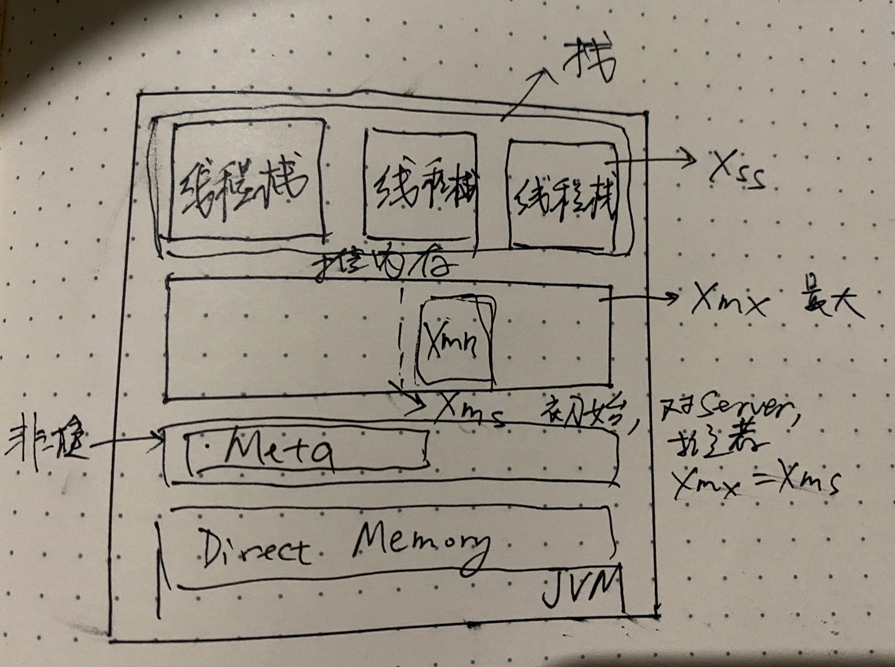 栈
线程栈 线程栈 线程栈 Xss
堆内存
Xmx 最大
Xmn
Xms 初始, 对Server,
Xmx = Xms
非堆
Meta
Direct Memory
JVM